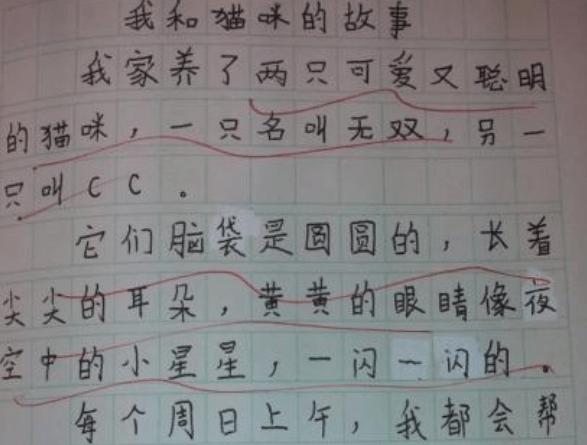 我和猫咪的故事
我家养了两只可爱又聪明
的猫咪，一只名叫无双，另一
只叫CC。
它们脑袋是圆圆的，长着
尖尖的耳朵，黄黄的眼睛像夜
空中的小星星，一闪一闪的。
每个周日上午，我都会帮